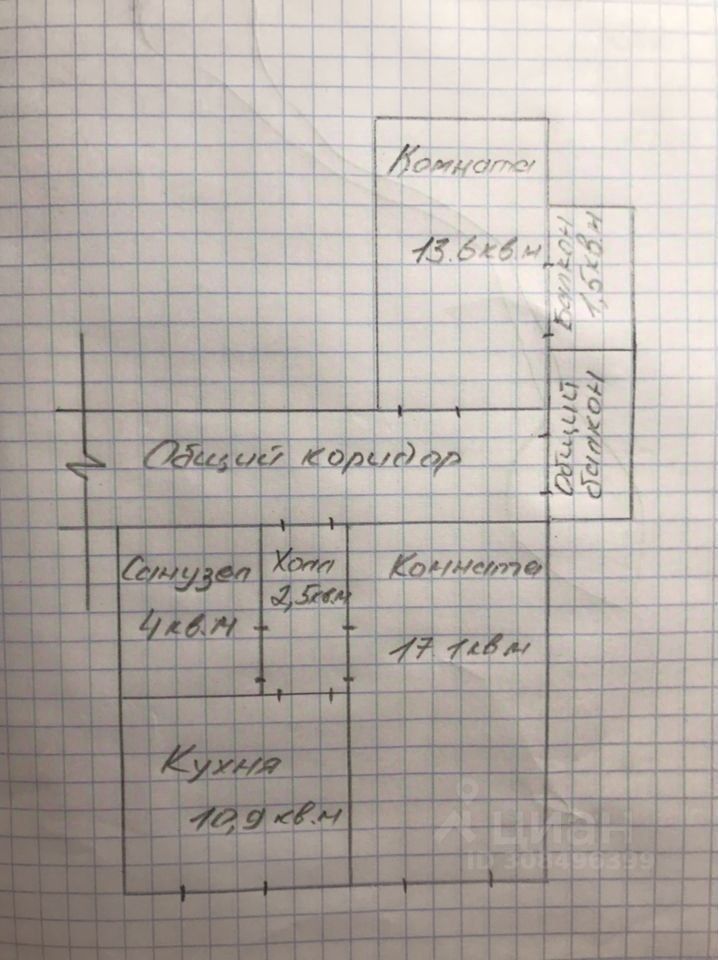 Комната
13.6кв.м
Балкон
1,5кв.м
Общий
балкон
Общий коридор
Санузел
4кв.м
Холл
2,5кв.м
Комната
17.1кв.м
Кухня
10,9кв.м
циан
ID 308496399